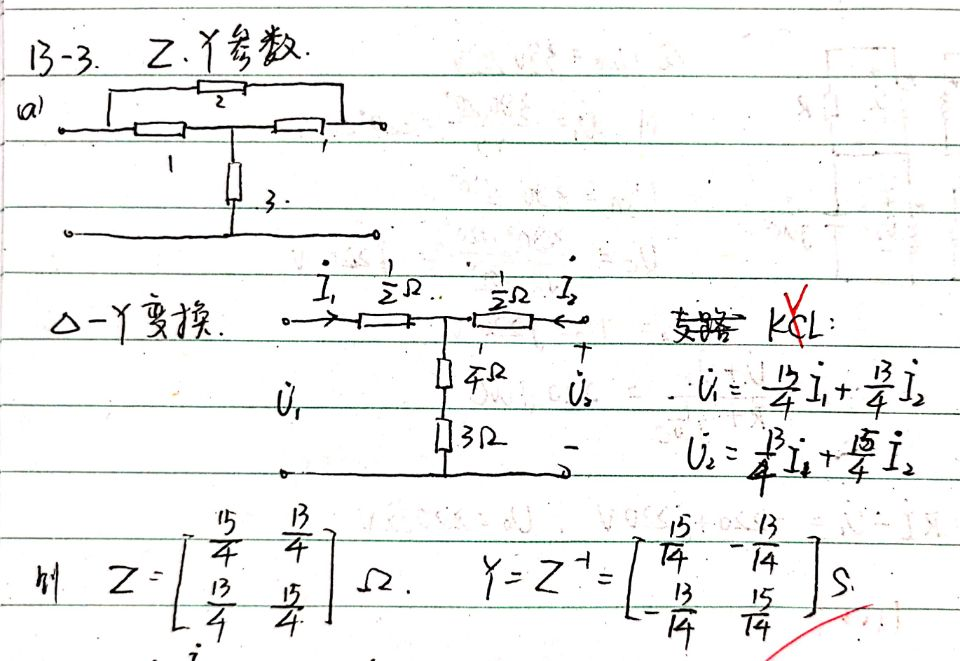 13-3. Z、Y参数.
(a)
2
1 1
3.
△-Y变换.
İ₁ 1/2 Ω 1/2 Ω İ₂
KCL:
V
U̇₁ 1/4 Ω + U̇₂ -
3Ω
U̇₁ = 15/4 İ₁ + 13/4 İ₂
U̇₂ = 13/4 İ₁ + 15/4 İ₂
则 Z = [15/4 13/4; 13/4 15/4] Ω. Y = Z⁻¹ = [15/14 -13/14; -13/14 15/14] S.